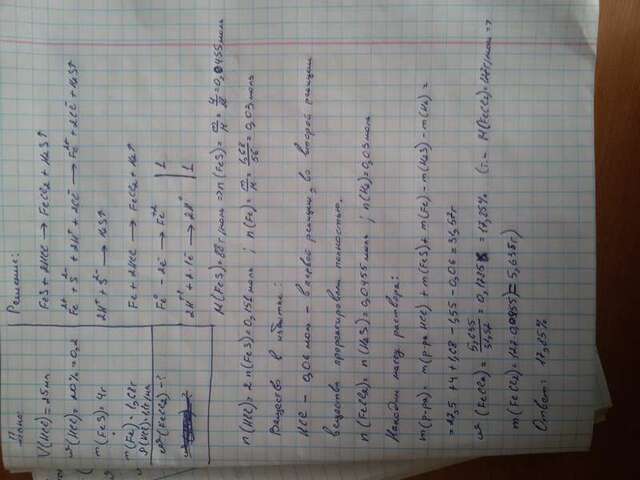 Дано:
V(HCl) = 25 мл
ω(HCl) = 20% = 0,2
m(FeS) = 4г
m(Fe) = 1,68г
ω(FeCl2) - ?
Решение:
FeS + 2HCl → FeCl2 + H2S↑
Fe2+ + S2- + 2H+ + 2Cl- → Fe2+ + 2Cl- + H2S↑
2H+ + S2- → H2S↑
Fe + 2HCl → FeCl2 + H2↑
Fe0 - 2e- → Fe+2 | 1
2H+ + 2·1e- → 2H0 | 1
M(FeS) = 88 г/моль => n(FeS) = m/M = 4/88 = 0,0455 моль
n(HCl) = 2n(FeS) = 0,151 моль ; n(Fe) = m/M = 1,68/56 = 0,03 моль
Вещество в избытке:
HCl - 0,06 моль - в первой реакции, во второй реакции
вещества прореагировали полностью.
n(FeCl2) = n(H2S) = 0,0455 моль ; n(H2) = 0,03 моль
Находим массу раствора:
m(р-ра) = m(р-ра HCl) + m(FeS) + m(Fe) - m(H2S) - m(H2) =
= 27,5 + 4 + 1,68 - 1,55 - 0,06 = 31,57г
ω(FeCl2) = 5,635/31,57 = 0,1785 = 17,85% (т.к. M(FeCl2) = 127 г/моль =>
m(FeCl2) = 127·0,0455) = 5,635г)
Ответ: 17,85%